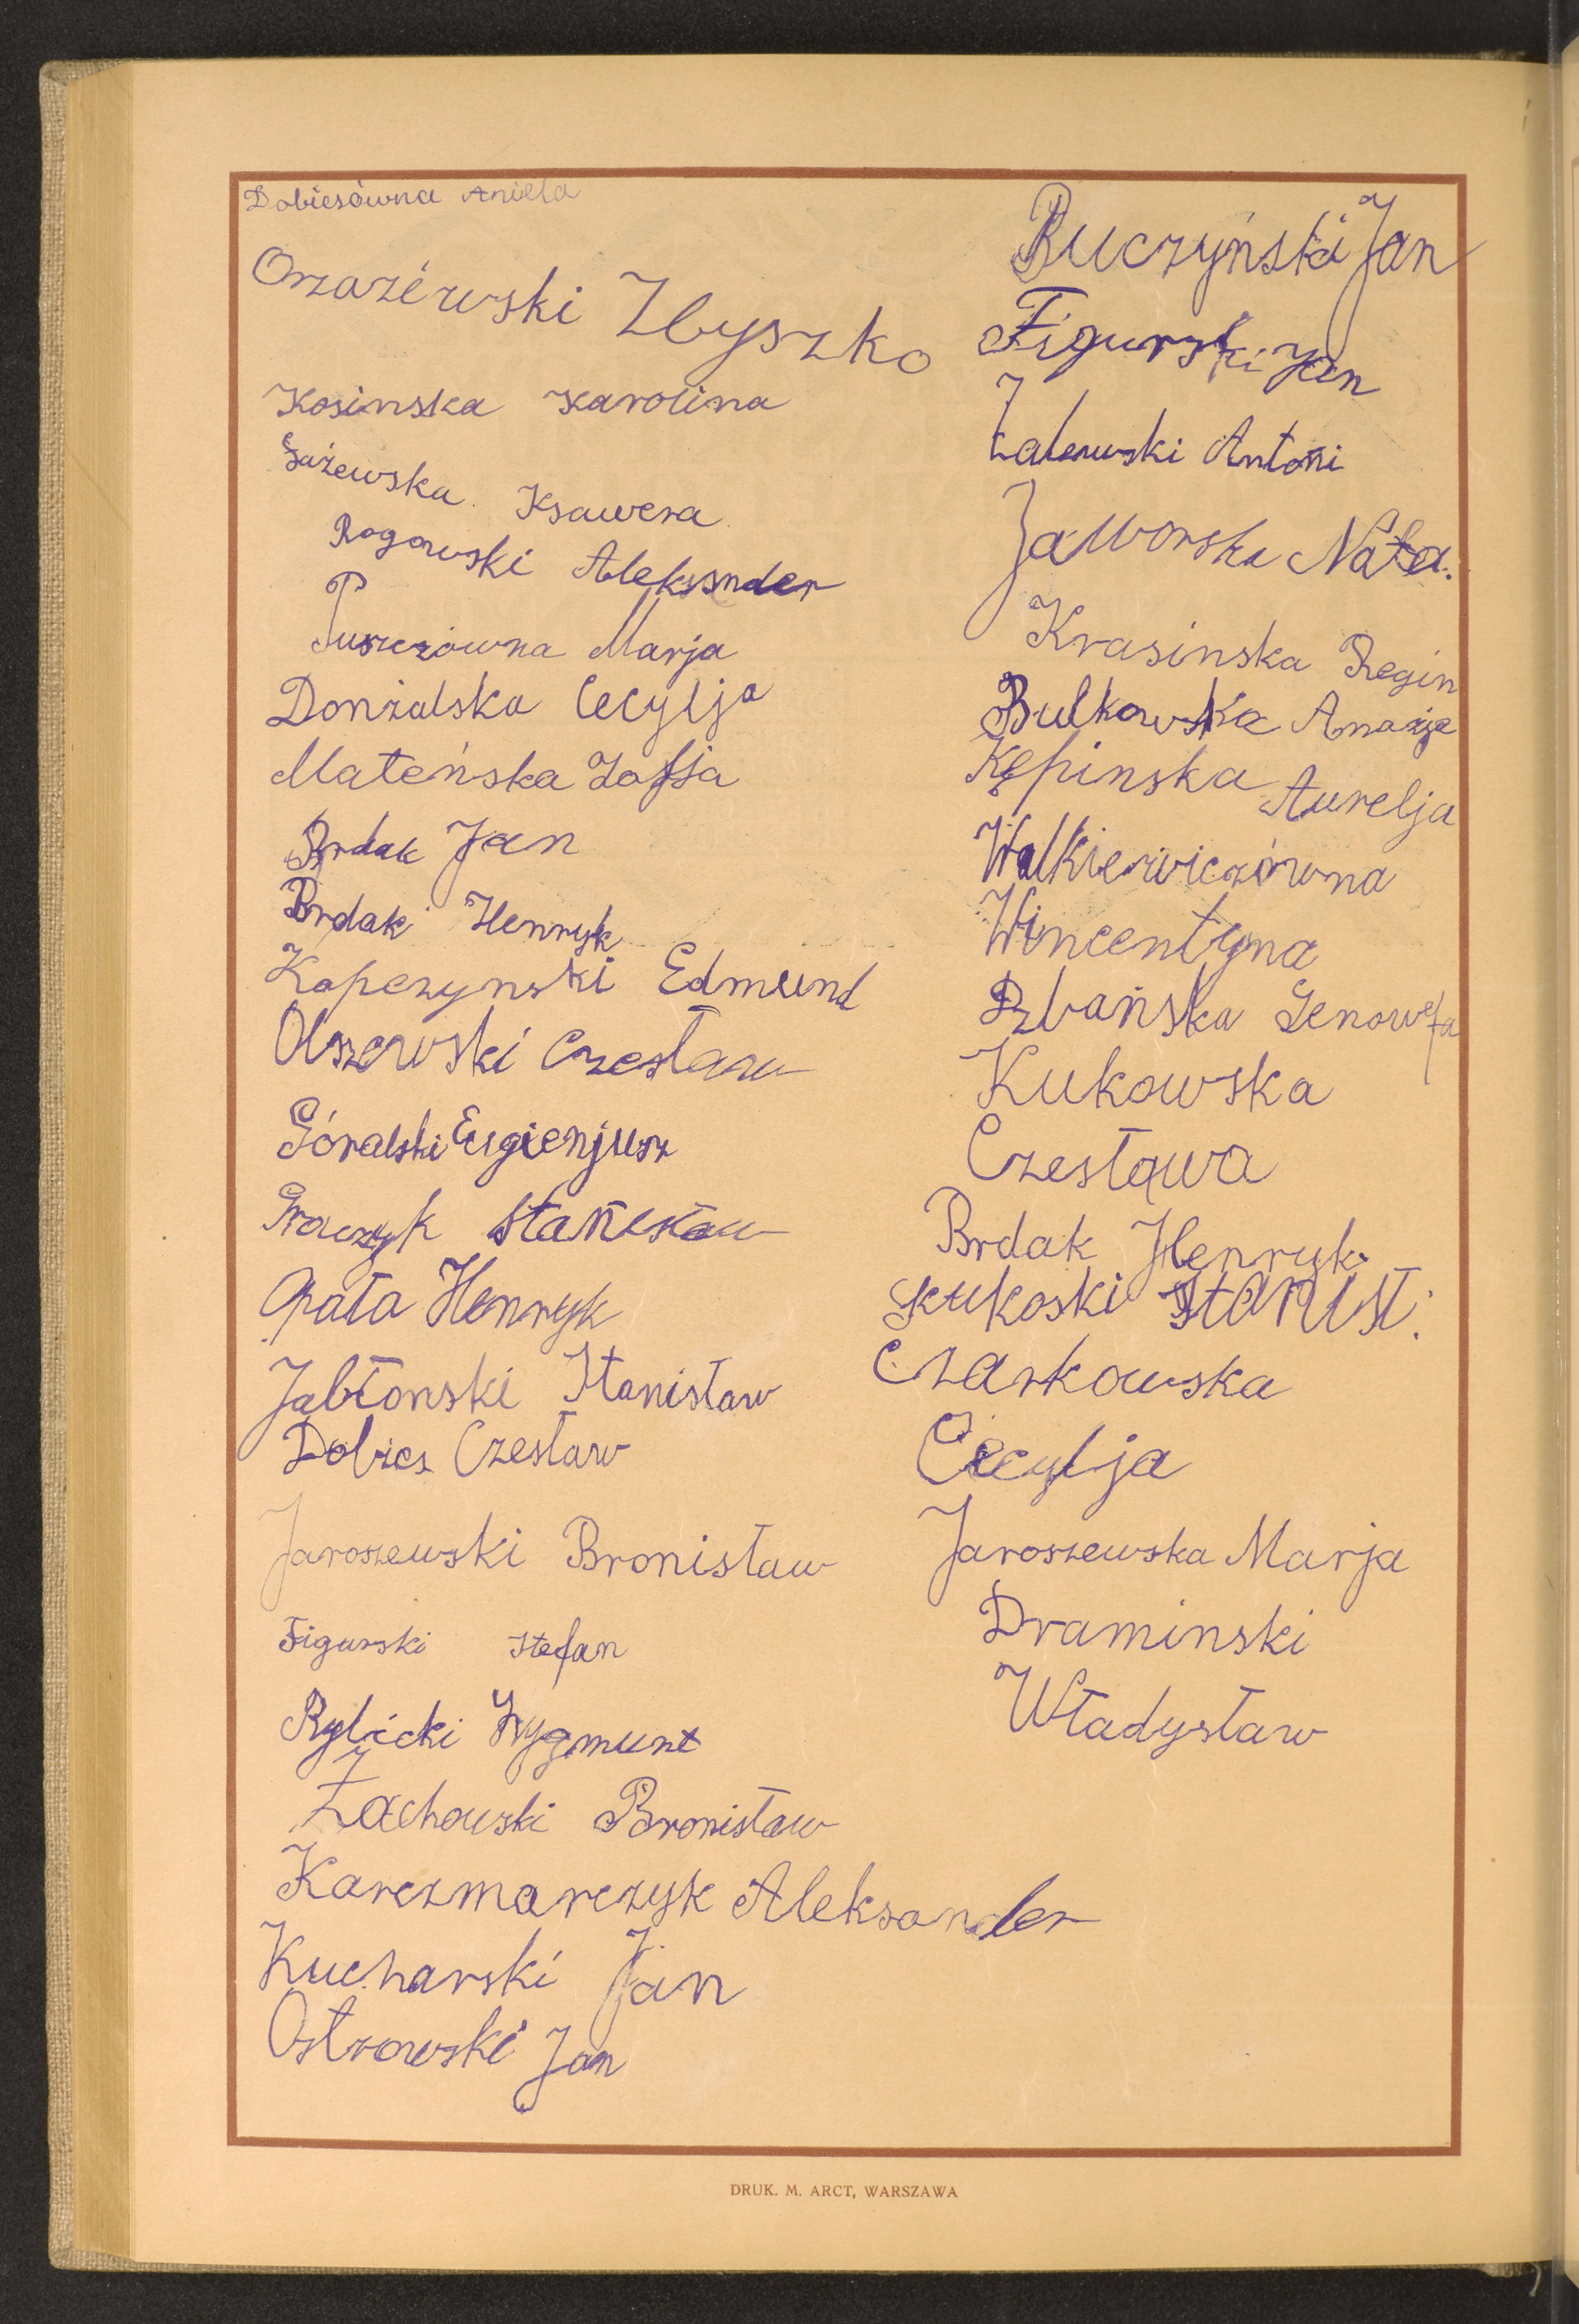 Dobiesówna Aniela
Orzażewski Zbyszko
Kosinska Karolina
Gażewska Ksawera
Rogowski Aleksander
Puszczówna Marja
Donżalska Cecylja
Mateńska Zofja
Brdak Jan
Brdak Henryk
Kopczynski Edmund
Olszewski Czesław
Góralski Eugienjusz
Stanisław
Opała Henryk
Jabłonski Stanisław
Dobies Czesław
Jaroszewski Bronisław
Figurski Stefan
Rybicki Zygmunt
Żochowski Bronisław
Karczmarczyk Aleksander
Kucharski Jan
Ostrowski Jan
Ruczyński Jan
Figurski Jan
Zalewski Antoni
Jaworska Nata.
Krasinska Regin
Bulkowska
Kępinska Aurelja
Walkiewiczówna
Wincentyna
Genowefa
Kukowska
Czesława
Brdak Henryk
Kukoski
Czarkowska
Cecylja
Jaroszewska Marja
Draminski
Władysław
DRUK. M. ARCT, WARSZAWA